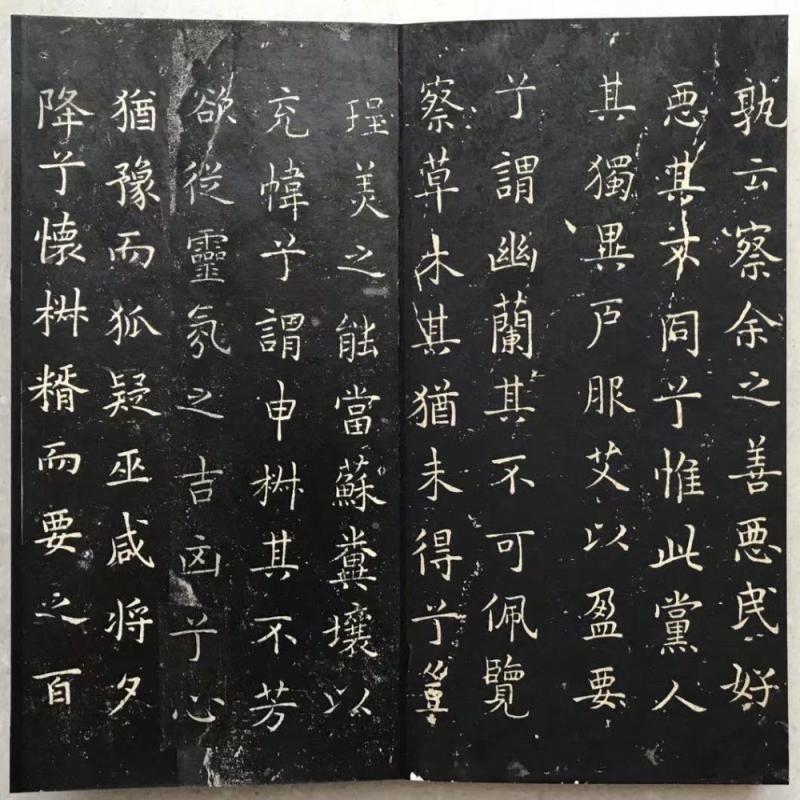 孰云察余之善悪民好
悪其不同兮惟此黨人
其獨異户服艾以盈要
兮謂幽蘭其不可佩覽
察草木其猶未得兮豈
珵美之能當蘇糞壤以
充幃兮謂申椒其不芳
欲從靈氛之吉凶兮心
猶豫而狐疑巫咸将夕
降兮懷椒糈而要之百